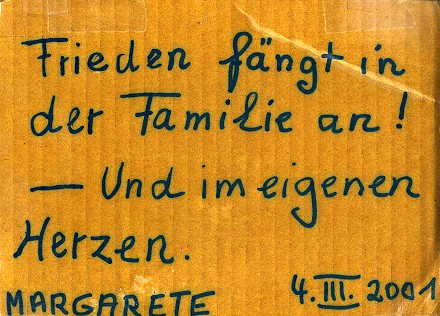 Frieden fängt in
der Familie an!
— Und im eigenen
Herzen.
MARGARETE 4. III. 2001